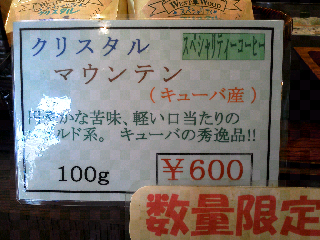 クリスタル
マウンテン
スペシャリティーコーヒー
(キューバ産)
かな苦味、軽い口当たりの
ルド系。 キューバの秀逸品!!
100g
¥600
数量限定